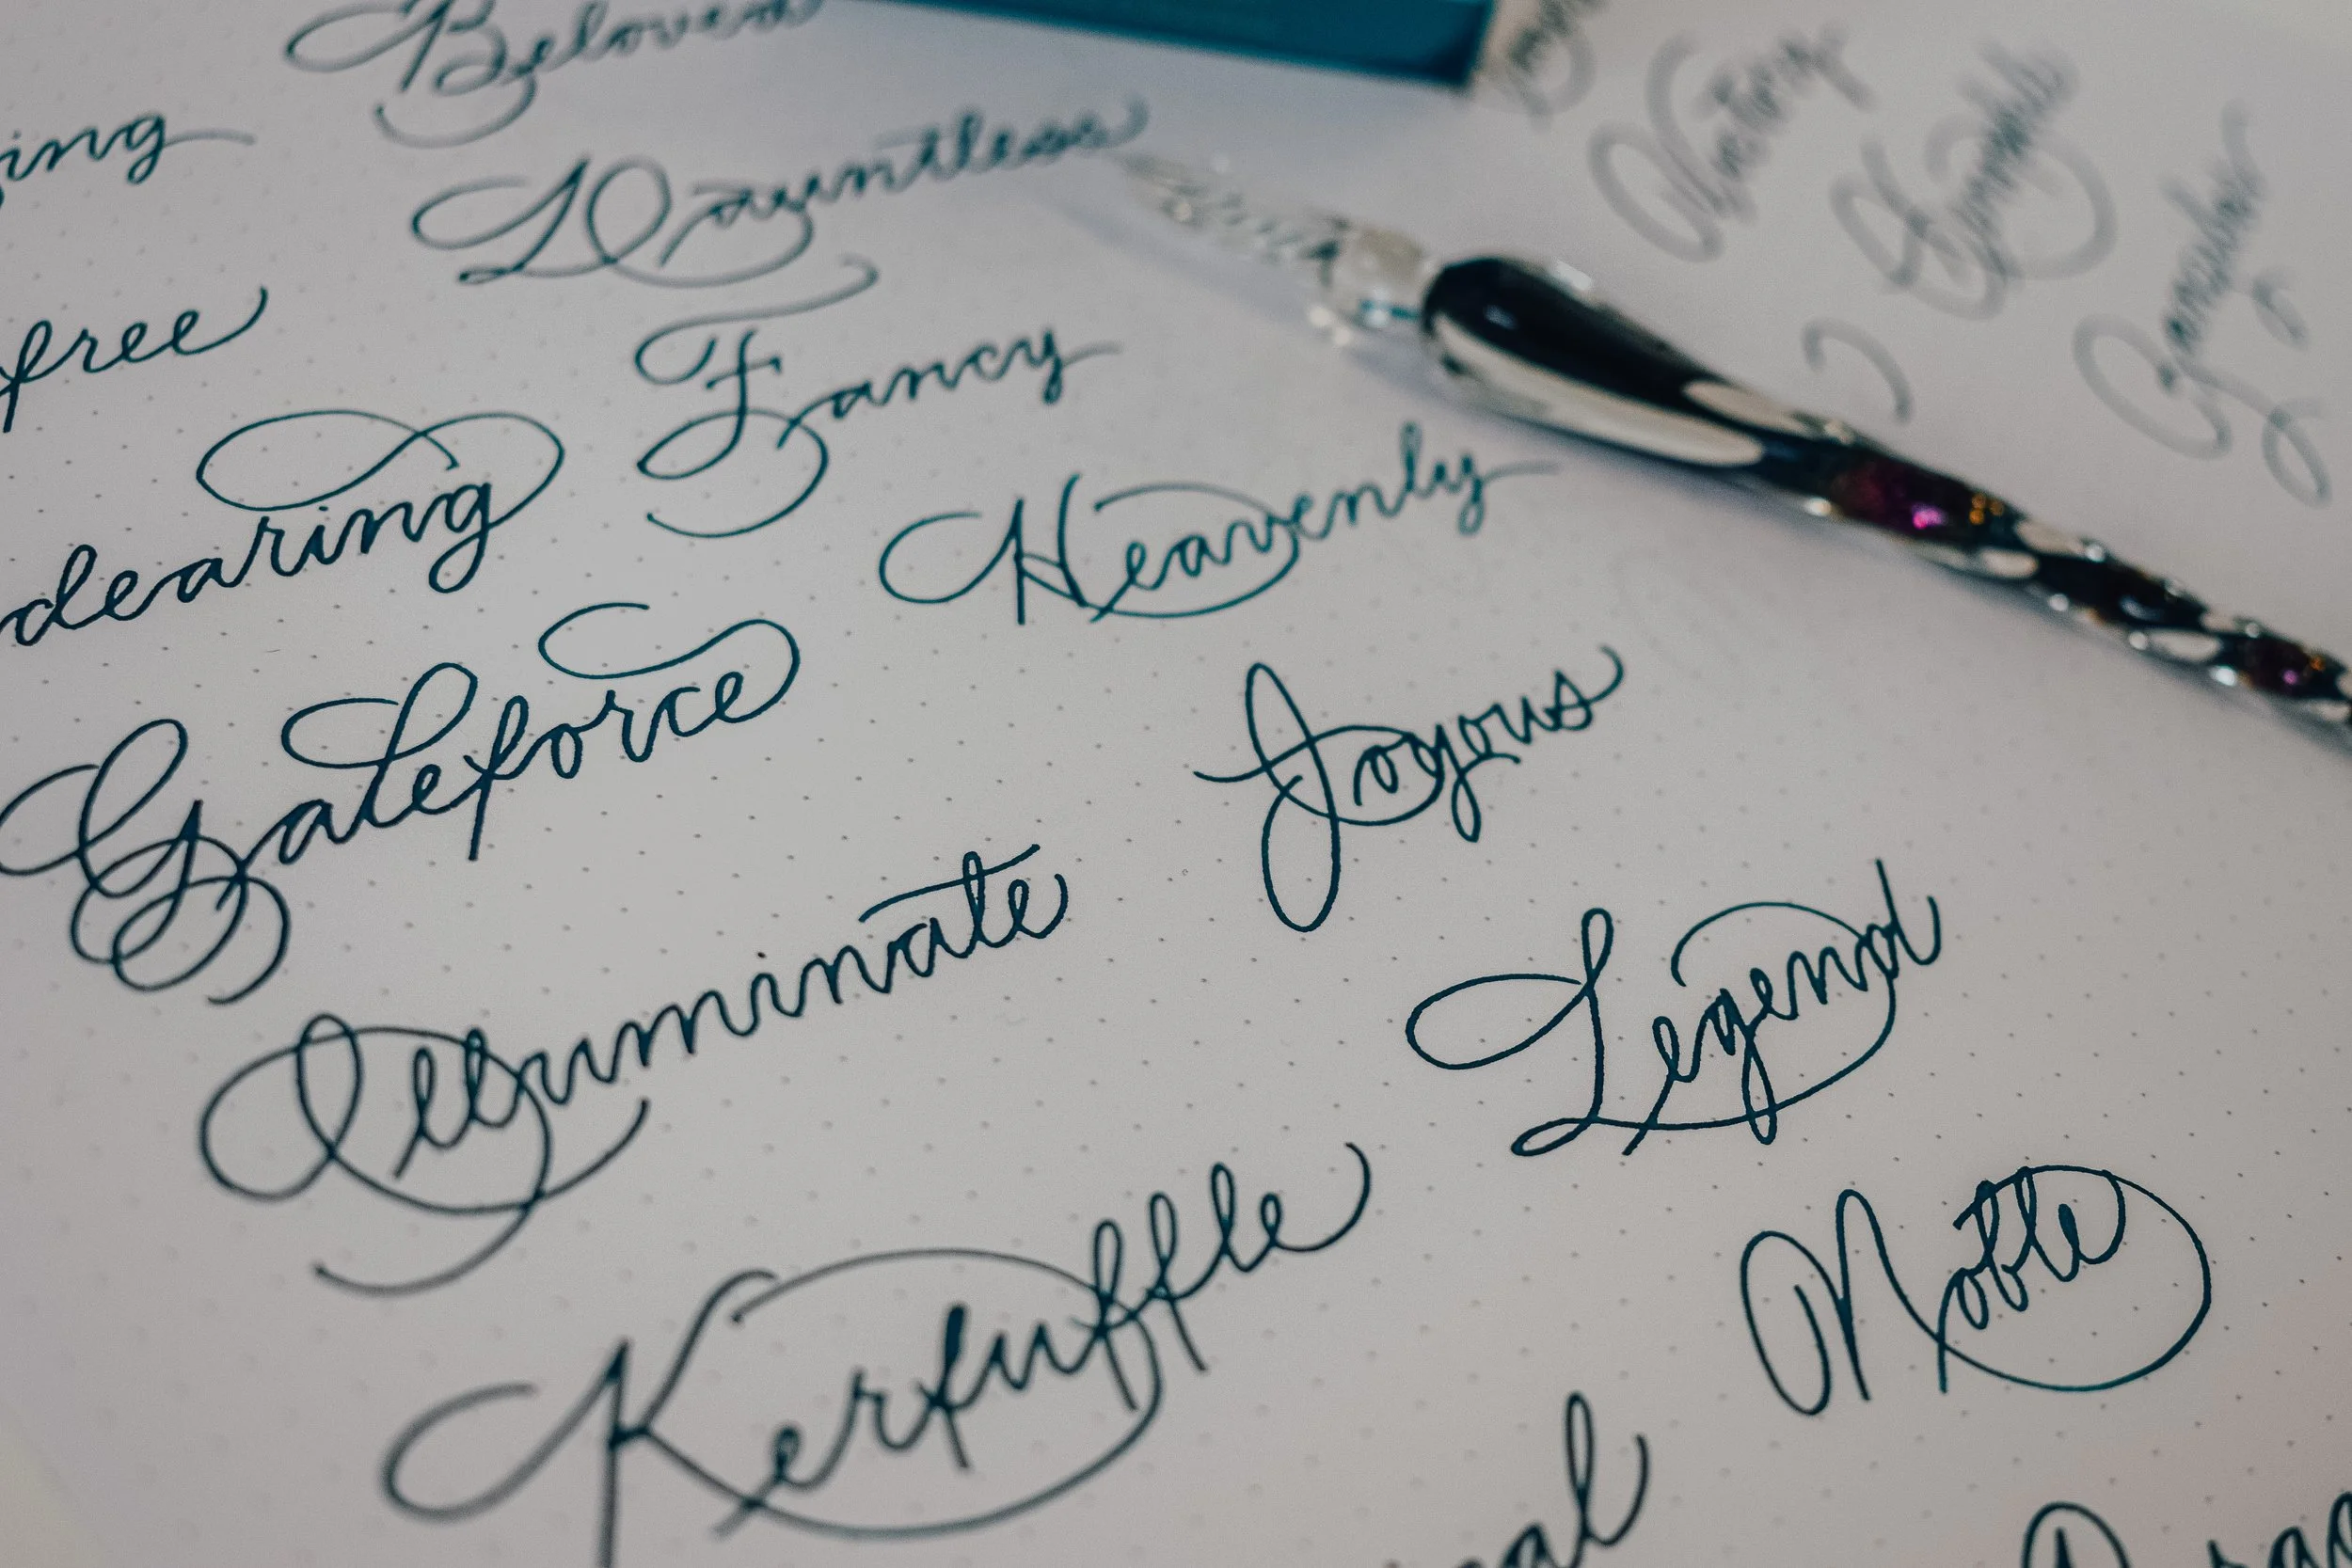 Beloved
ing
Dauntless
free
Fancy
dearing
Heavenly
Galeforce
Joyous
Illuminate
Legend
Kerfuffle
Noble
al